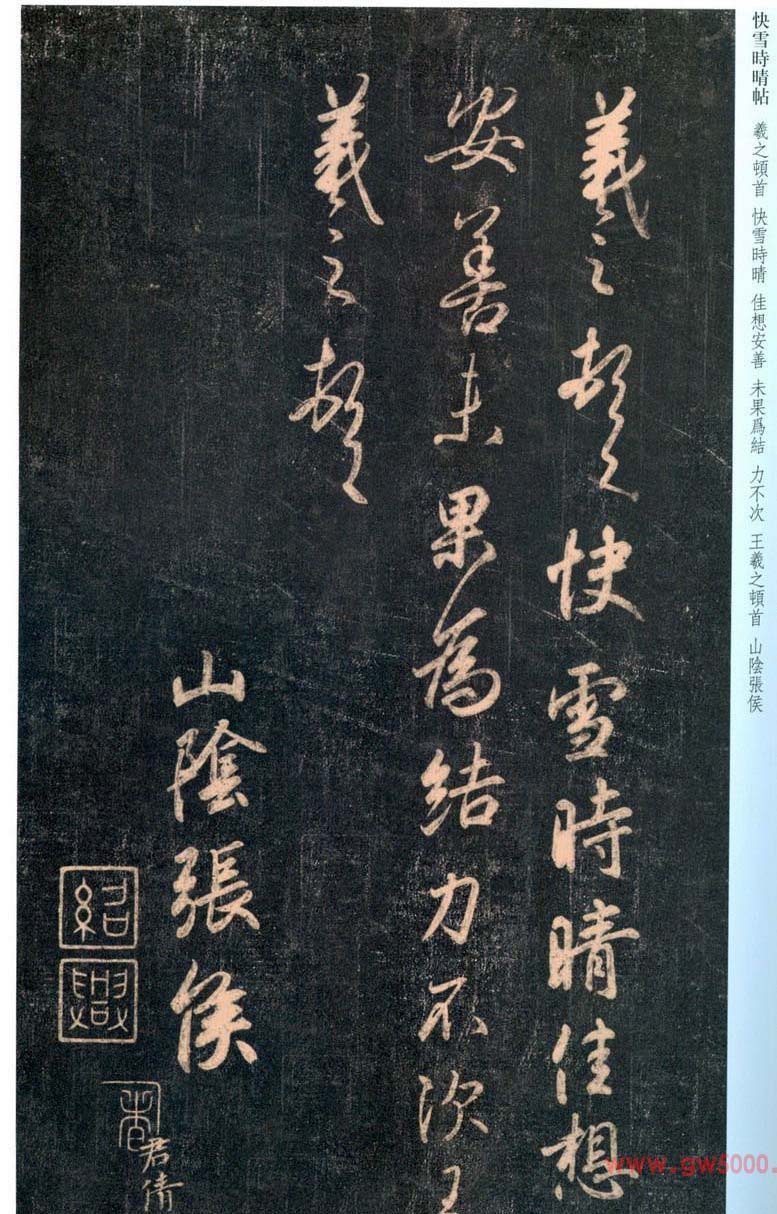 快雪時晴帖 羲之頓首 快雪時晴 佳想安善 未果爲結 力不次 王羲之頓首 山陰張侯
羲之頓首快雪時晴佳想
安善未果為結力不次王
羲之頓首
山陰張侯
紹興
君倩
www.gw5000.